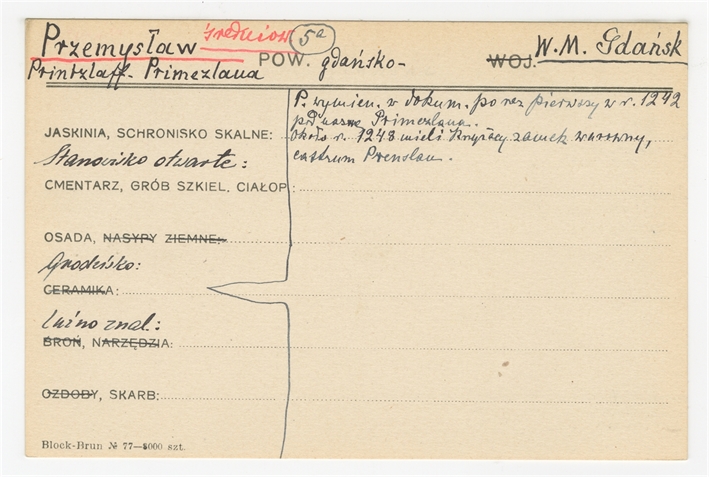 Przemysław średniow 5a W.M. Gdańsk
POW. gdańsko- WOJ.
Printzlaff - Primezlaua
P. wymien. w dokum. po raz pierwszy w r. 1242
pod nazwą Primezlaua.
JASKINIA, SCHRONISKO SKALNE: około r. 1248 mieli Krzyżacy zamek warowny,
Stanowisko otwarte: castrum Prenslau.
CMENTARZ, GRÓB SZKIEL. CIAŁOP.:
OSADA, NASYPY ZIEMNE:
Grodzisko:
CERAMIKA:
Luźno znal.:
BROŃ, NARZĘDZIA:
OZDOBY, SKARB:
Block-Brun № 77—5000 szt.